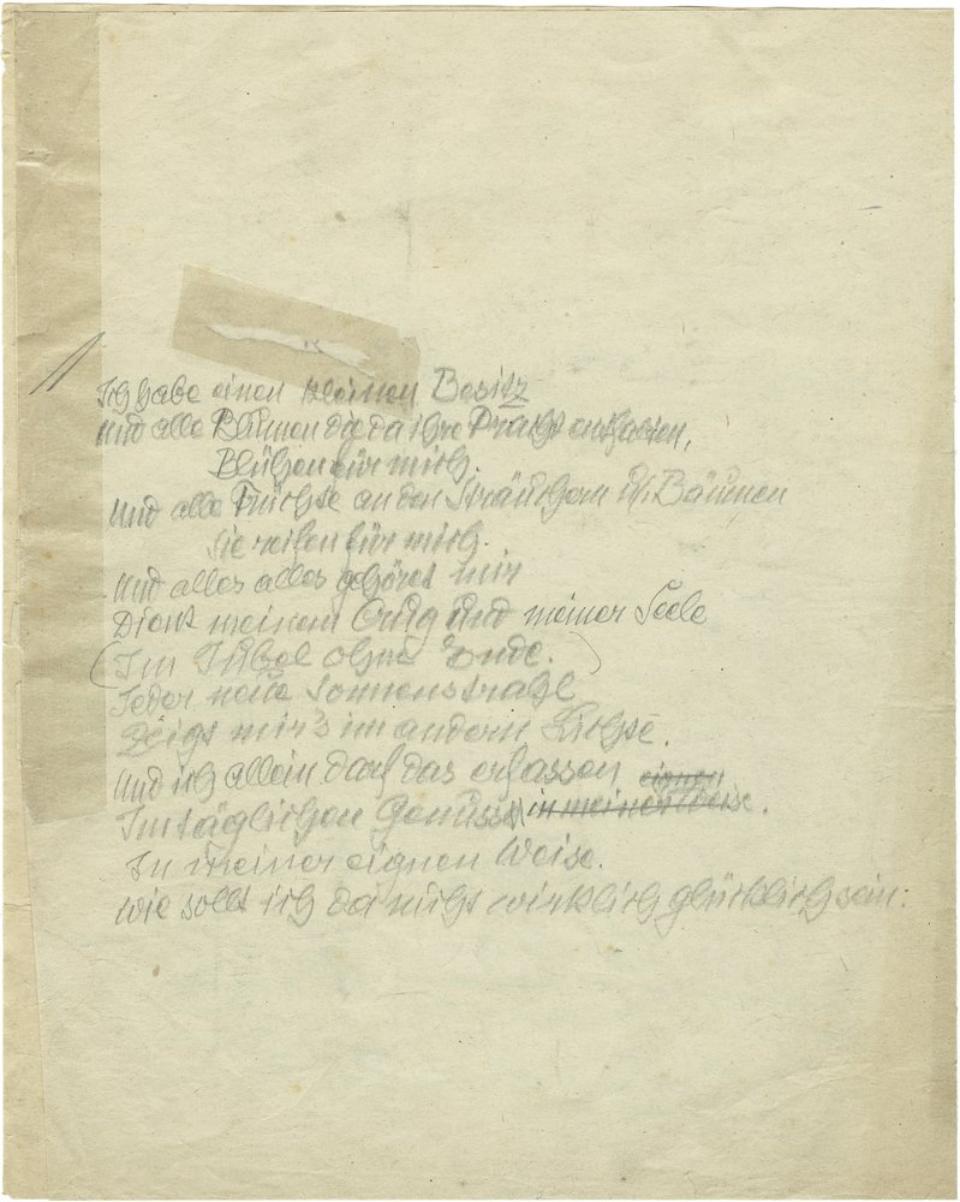 Ich habe einen kleinen Besitz
Und alle Blumen die da ihre Pracht entfalten,
Blühen für mich.
Und alle Früchte an den Sträuchern u. Bäumen
Sie reifen für mich.
Und alles alles gehöret mir
Dient meinem Aug und meiner Seele
(Im Jubel ohne Ende.)
Jeder neue Sonnenstrahl
Zeigt mir's im andern Lichte.
Und ich allein darf das erfassen eignen
Im täglichen Genuss in meiner Weise.
In meiner eignen Weise.
Wie sollt ich da nicht wirklich glücklich sein.